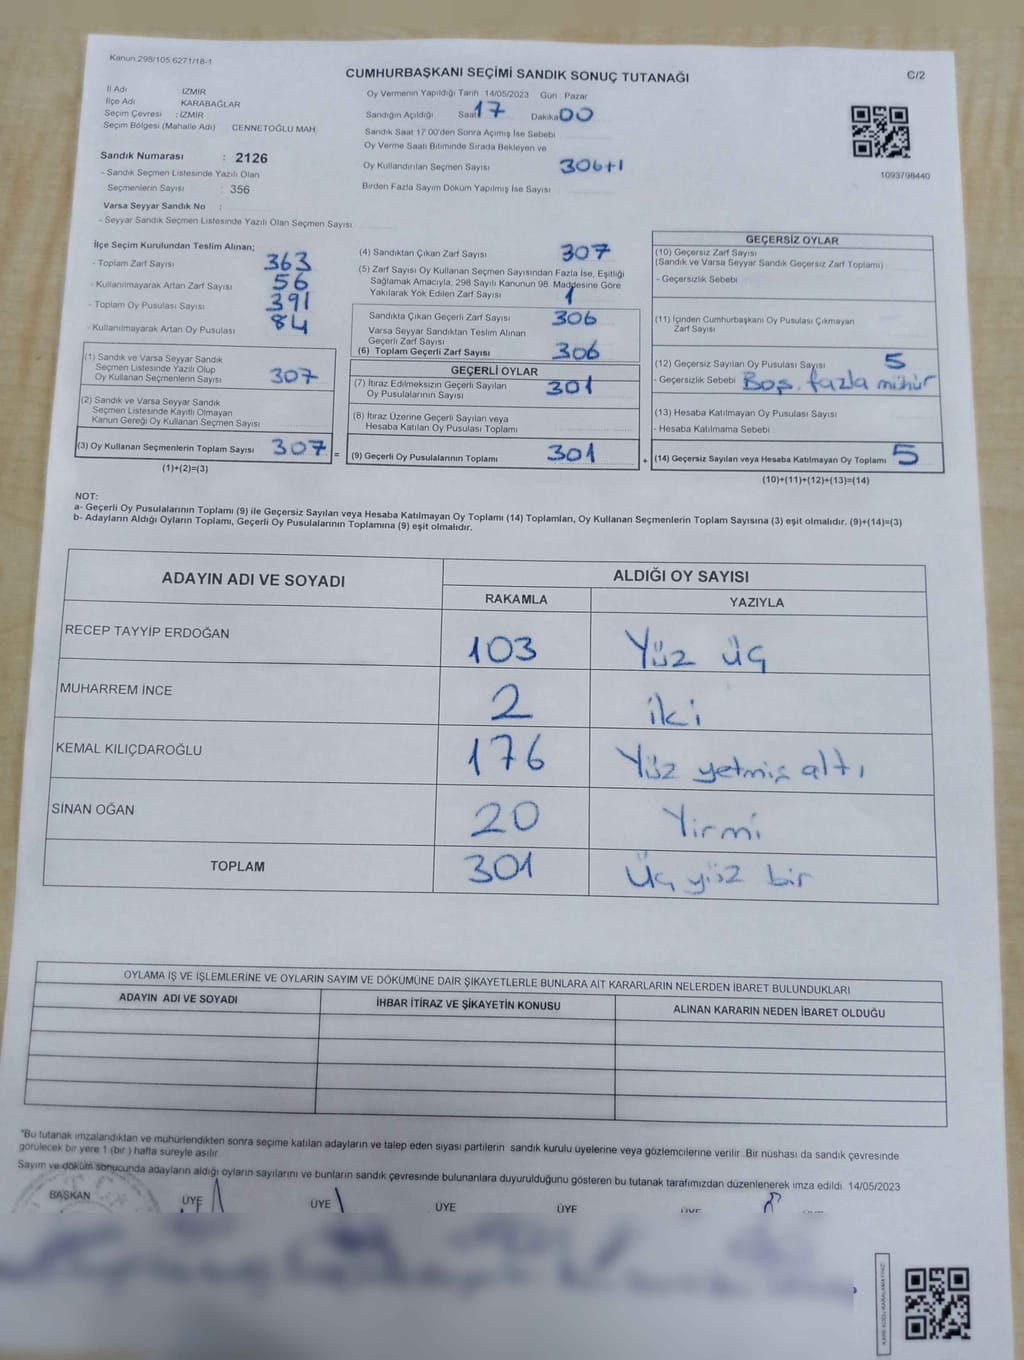 Kanun:298/105,6271/18-1
CUMHURBAŞKANI SEÇİMİ SANDIK SONUÇ TUTANAĞI
C/2
İl Adı İZMİR
İlçe Adı KARABAĞLAR
Seçim Çevresi : İZMİR
Seçim Bölgesi (Mahalle Adı) : CENNETOĞLU MAH.
Sandık Numarası : 2126
- Sandık Seçmen Listesinde Yazılı Olan
Seçmenlerin Sayısı : 356
Varsa Seyyar Sandık No :
- Seyyar Sandık Seçmen Listesinde Yazılı Olan Seçmen Sayısı
Oy Vermenin Yapıldığı Tarih :14/05/2023 Gün : Pazar
Sandığın Açıldığı Saat 17 Dakika 00
Sandık Saat 17:00'den Sonra Açımış İse Sebebi
Oy Verme Saati Bitiminde Sırada Bekleyen ve
Oy Kullandırılan Seçmen Sayısı 306+1
Birden Fazla Sayım Döküm Yapılmış İse Sayısı
1093798440
İlçe Seçim Kurulundan Teslim Alınan;
- Toplam Zarf Sayısı 363
- Kullanılmayarak Artan Zarf Sayısı 56
- Toplam Oy Pusulası Sayısı 391
- Kullanılmayarak Artan Oy Pusulası 84
(1) Sandık ve Varsa Seyyar Sandık
Seçmen Listesinde Yazılı Olup
Oy Kullanan Seçmenlerin Sayısı 307
(2) Sandık ve Varsa Seyyar Sandık
Seçmen Listesinde Kayıtlı Olmayan
Kanun Gereği Oy Kullanan Seçmen Sayısı
(3) Oy Kullanan Seçmenlerin Toplam Sayısı 307 =
(1)+(2)=(3)
(4) Sandıktan Çıkan Zarf Sayısı 307
(5) Zarf Sayısı Oy Kullanan Seçmen Sayısından Fazla İse, Eşitliği
Sağlamak Amacıyla, 298 Sayılı Kanunun 98. Maddesine Göre
Yakılarak Yok Edilen Zarf Sayısı 1
Sandıkta Çıkan Geçerli Zarf Sayısı 306
Varsa Seyyar Sandıktan Teslim Alınan
Geçerli Zarf Sayısı
(6) Toplam Geçerli Zarf Sayısı 306
GEÇERLİ OYLAR
(7) İtiraz Edilmeksizin Geçerli Sayılan
Oy Pusulalarının Sayısı 301
(8) İtiraz Üzerine Geçerli Sayılan veya
Hesaba Katılan Oy Pusulası Toplamı
(9) Geçerli Oy Pusulalarının Toplamı 301 +
GEÇERSİZ OYLAR
(10) Geçersiz Zarf Sayısı
(Sandık ve Varsa Seyyar Sandık Geçersiz Zarf Toplamı)
- Geçersizlik Sebebi
(11) İçinden Cumhurbaşkanı Oy Pusulası Çıkmayan
Zarf Sayısı
(12) Geçersiz Sayılan Oy Pusulası Sayısı 5
- Geçersizlik Sebebi Boş, fazla mühür
(13) Hesaba Katılmayan Oy Pusulası Sayısı
- Hesaba Katılmama Sebebi
(14) Geçersiz Sayılan veya Hesaba Katılmayan Oy Toplamı 5
(10)+(11)+(12)+(13)=(14)
NOT:
a- Geçerli Oy Pusulalarının Toplamı (9) ile Geçersiz Sayılan veya Hesaba Katılmayan Oy Toplamı (14) Toplamları, Oy Kullanan Seçmenlerin Toplam Sayısına (3) eşit olmalıdır. (9)+(14)=(3)
b- Adayların Aldığı Oyların Toplamı, Geçerli Oy Pusulalarının Toplamına (9) eşit olmalıdır.
ADAYIN ADI VE SOYADI ALDIĞI OY SAYISI
RAKAMLA YAZIYLA
RECEP TAYYİP ERDOĞAN 103 Yüz üç
MUHARREM İNCE 2 iki
KEMAL KILIÇDAROĞLU 176 Yüz yetmiş altı
SİNAN OĞAN 20 Yirmi
TOPLAM 301 Üç yüz bir
OYLAMA İŞ VE İŞLEMLERİNE VE OYLARIN SAYIM VE DÖKÜMÜNE DAİR ŞİKAYETLERLE BUNLARA AİT KARARLARIN NELERDEN İBARET BULUNDUKLARI
ADAYIN ADI VE SOYADI İHBAR İTİRAZ VE ŞİKAYETİN KONUSU ALINAN KARARIN NEDEN İBARET OLDUĞU
*Bu tutanak imzalandıktan ve mühürlendikten sonra seçime katılan adayların ve talep eden siyasi partilerin sandık kurulu üyelerine veya gözlemcilerine verilir. Bir nüshası da sandık çevresinde
görülecek bir yere 1 (bir) hafta süreyle asılır.
Sayım ve döküm sonucunda adayların aldığı oyların sayılarını ve bunların sandık çevresinde bulunanlara duyurulduğunu gösteren bu tutanak tarafımızdan düzenlenerek imza edildi. 14/05/2023
BAŞKAN ÜYE ÜYE ÜYE ÜYE